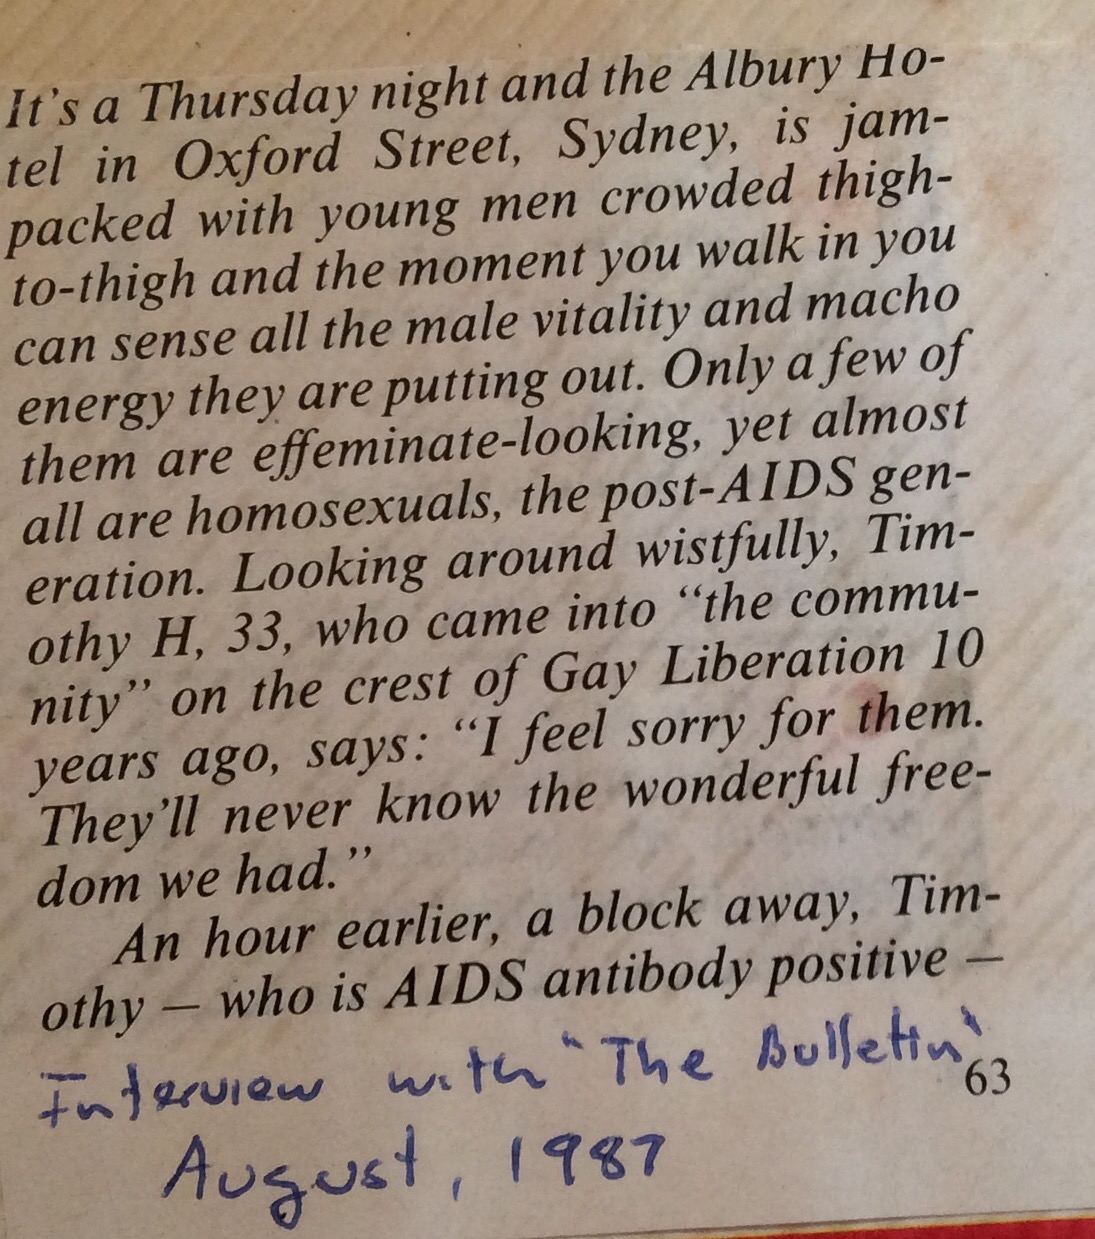 It's a Thursday night and the Albury Ho-
tel in Oxford Street, Sydney, is jam-
packed with young men crowded thigh-
to-thigh and the moment you walk in you
can sense all the male vitality and macho
energy they are putting out. Only a few of
them are effeminate-looking, yet almost
all are homosexuals, the post-AIDS gen-
eration. Looking around wistfully, Tim-
othy H, 33, who came into “the commu-
nity” on the crest of Gay Liberation 10
years ago, says: “I feel sorry for them.
They'll never know the wonderful free-
dom we had.”
An hour earlier, a block away, Tim-
othy — who is AIDS antibody positive —
Interview with "The Bulletin"
63
August, 1987